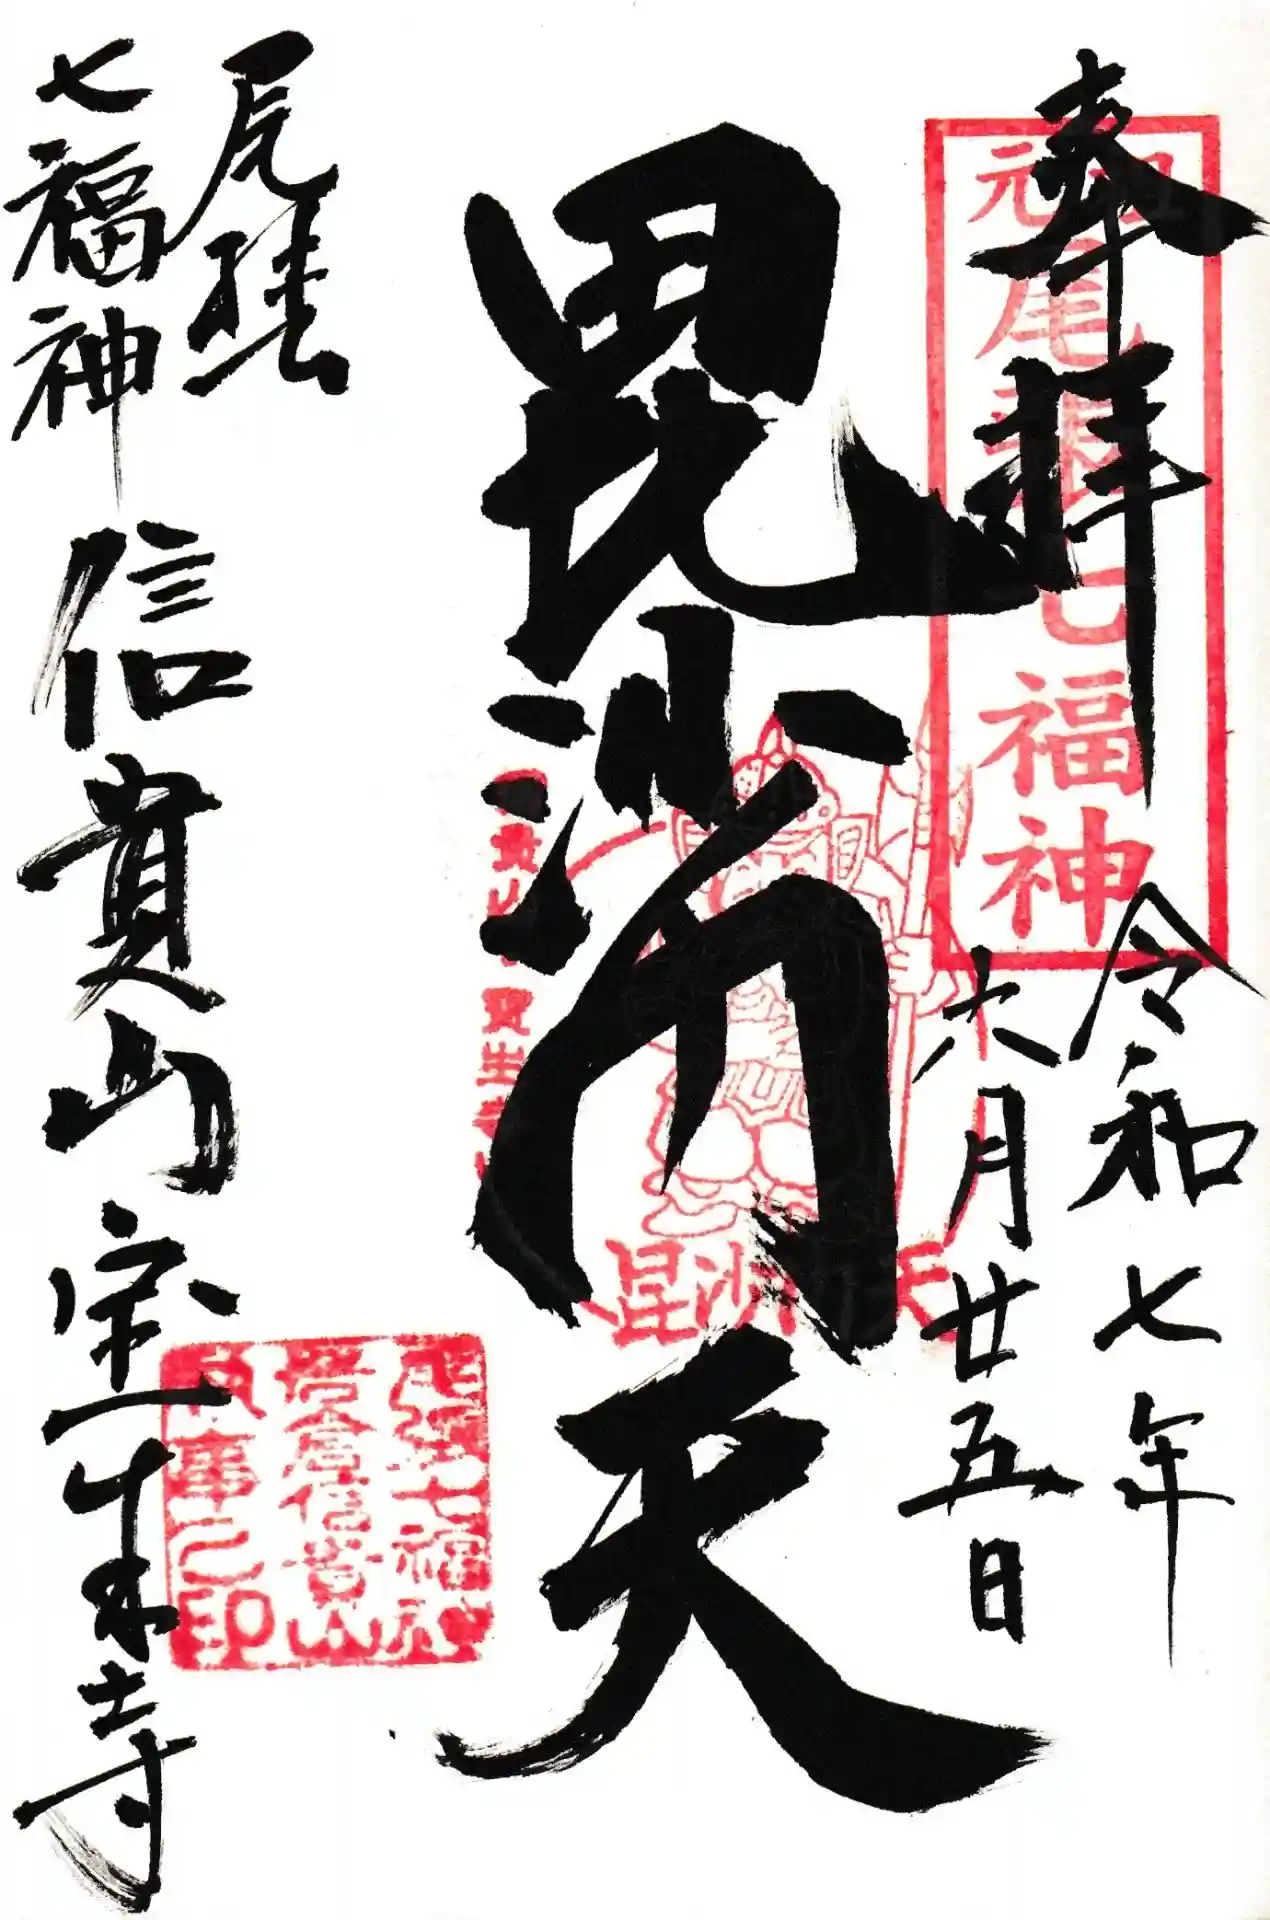 奉拝
尾張七福神
令和七年
六月廿五日
毘沙門天
毘沙門天
尾張
七福神
信貴山
尾張七福神
岩倉信貴山
之印